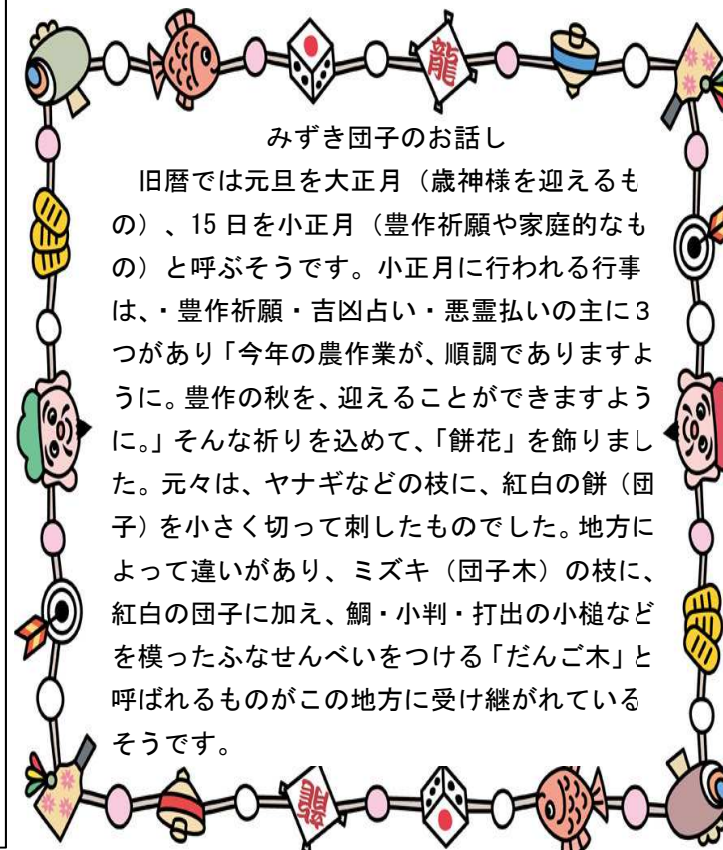 龍
みずき団子のお話し
旧暦では元旦を大正月（歳神様を迎えるも
の）、15日を小正月（豊作祈願や家庭的なも
の）と呼ぶそうです。小正月に行われる行事
は、・豊作祈願・吉凶占い・悪霊払いの主に3
つがあり「今年の農作業が、順調でありますよ
うに。豊作の秋を、迎えることができますよう
に。」そんな祈りを込めて、「餅花」を飾りまし
た。元々は、ヤナギなどの枝に、紅白の餅（団
子）を小さく切って刺したものでした。地方に
よって違いがあり、ミズキ（団子木）の枝に、
紅白の団子に加え、鯛・小判・打出の小槌など
を模ったふなせんべいをつける「だんご木」と
呼ばれるものがこの地方に受け継がれている
そうです。
龍